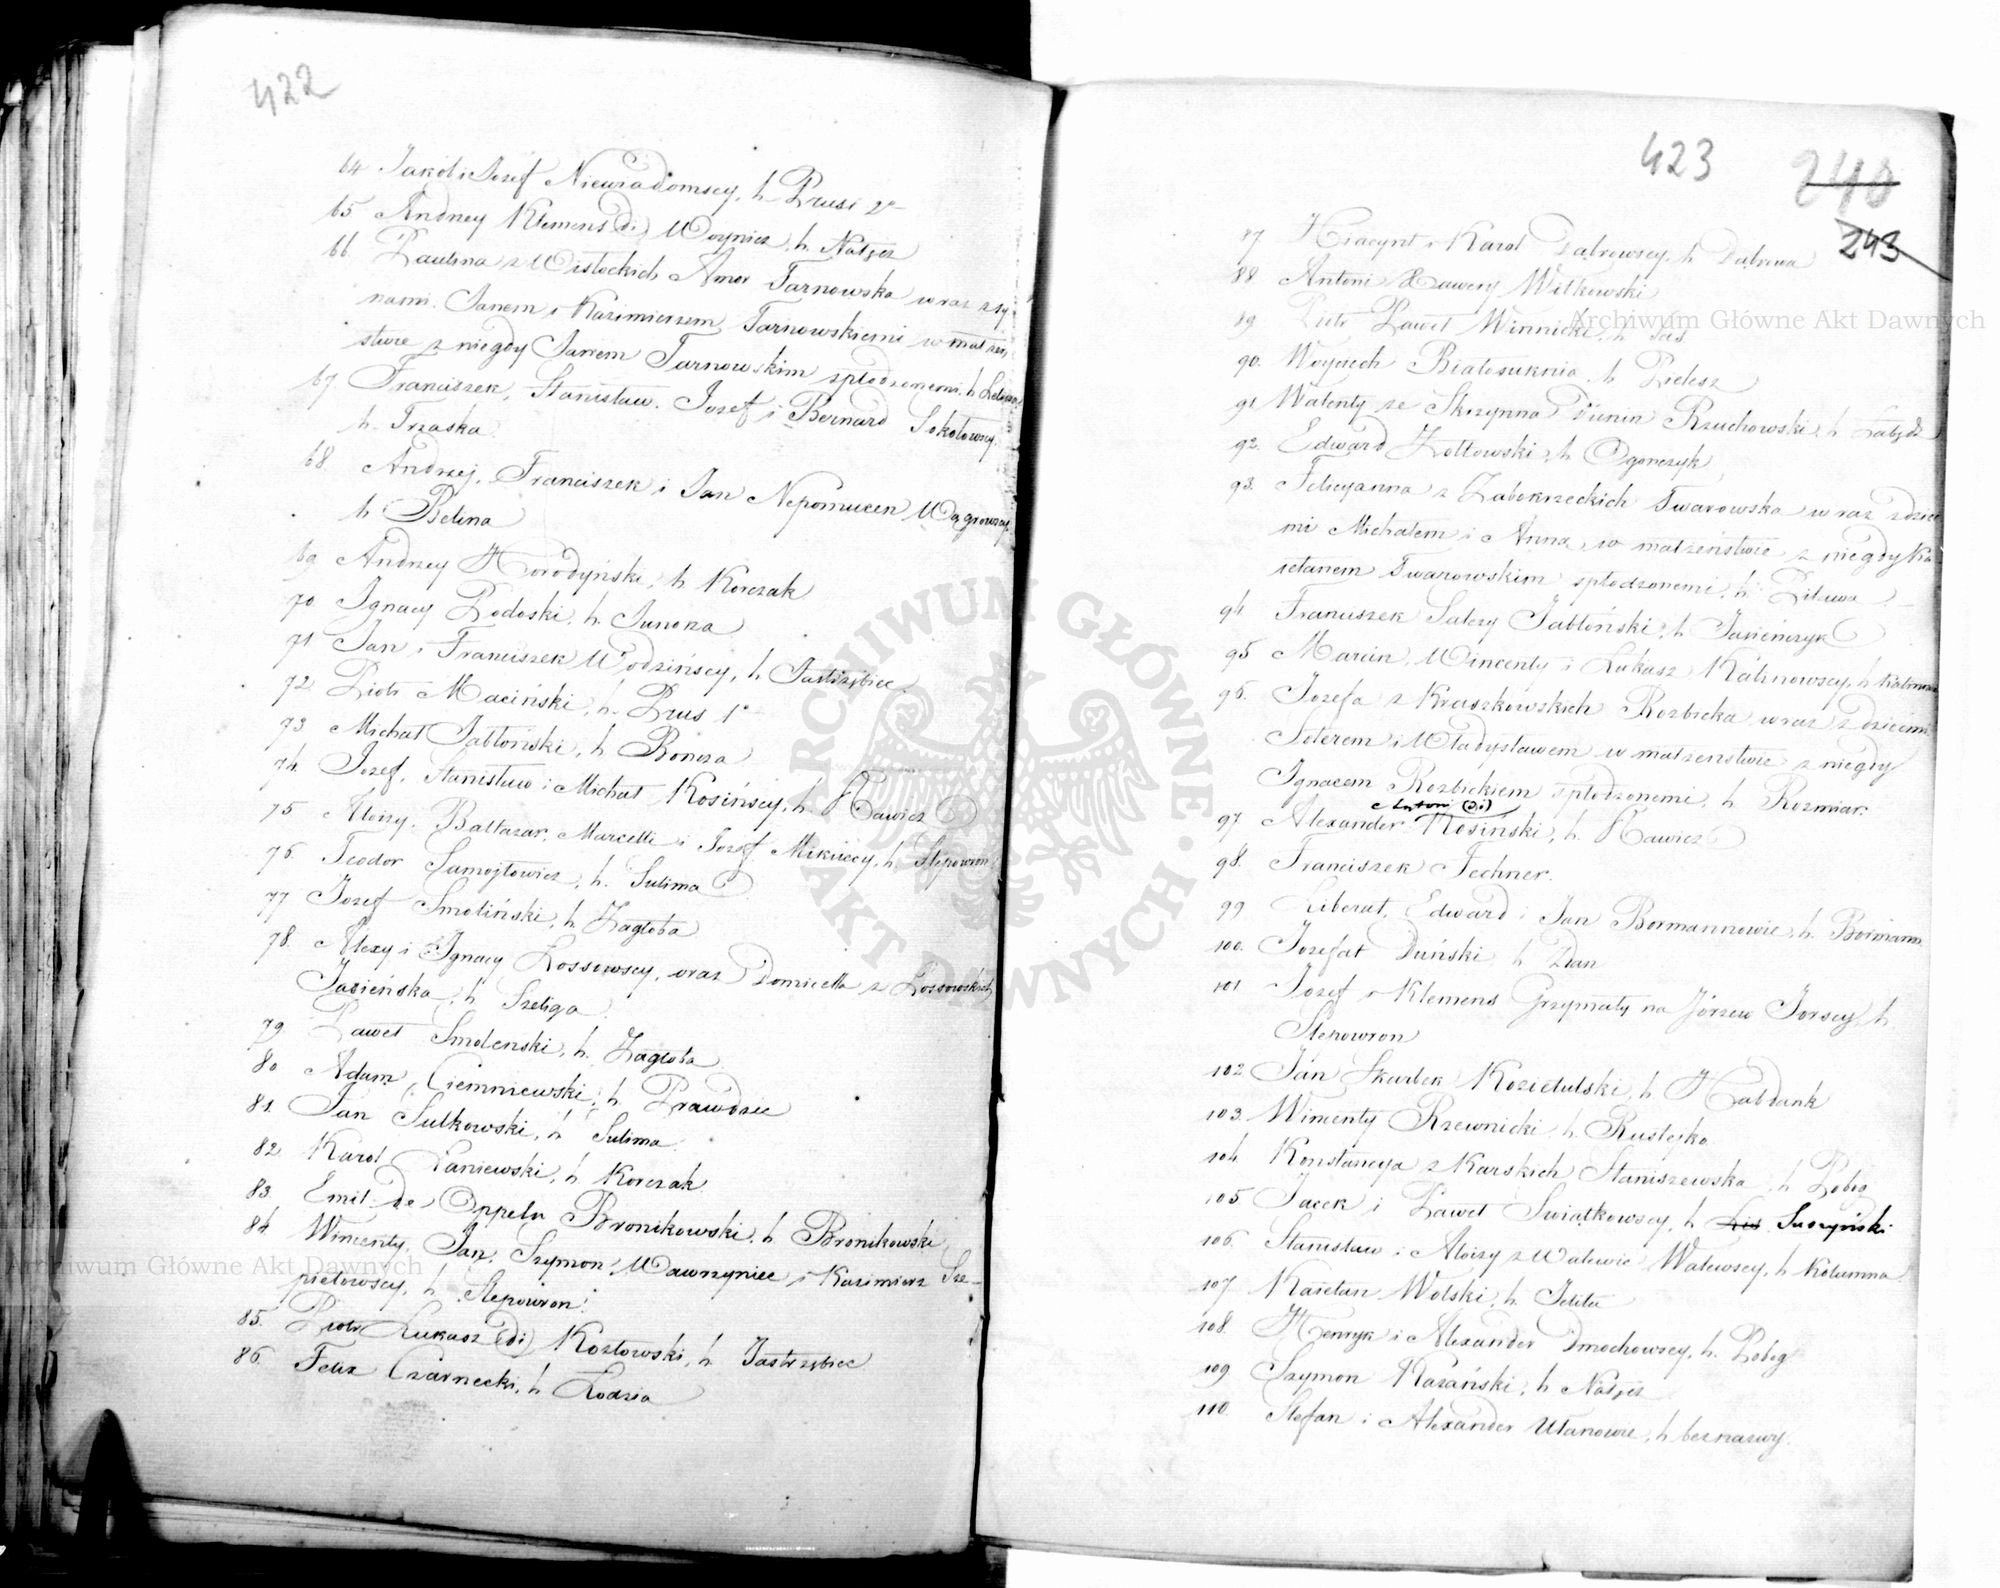 422
64 Jakób i Jozef Niewiadomscy, h. Prus 2º
65 Andrzey Klemens (2 i.) Woynicz, h. Nałęcz
66 Paulina z Wisłockich Amor Tarnowska wraz z sy-
nami Janem i Kazimierzem Tarnowskiemi w małżeń-
stwie z niegdy Janem Tarnowskim spłodzonemi, h. Leliwa
67. Franciszek, Stanisław, Jozef i Bernard Sokołowscy,
h. Trzaska
68. Andrzej, Franciszek i Jan Nepomucen Wągrowscy,
h. Belina
69 Andrzey Horodyński, h. Korczak
70 Ignacy Podoski, h. Junosza
71 Jan i Franciszek Wodzińscy, h. Jastrzębiec
72 Piotr Maciński, h. Prus 1º
73 Michał Jabłoński, h. Boncza
74. Jozef, Stanisław i Michał Kosińscy, h. Rawicz
75 Aloizy, Baltazar, Marcelli i Jozef Mikuccy, h. Slepowron
76. Teodor Samojłowicz, h. Sulima
77 Jozef Smoliński, h. Zagłoba
78. Alexy i Ignacy Lossowscy, oraz Domicella z Lossowskich
Jasieńska, h. Szeliga
79 Paweł Smolenski, h. Zagłoba
80 Adam Ciemniewski, h. Prawdzic
81. Jan Sulkowski, h. Sulima
82 Karol Łaniewski, h. Korczak
83. Emil de Oppeln Bronikowski, h. Bronikowski
84. Wincenty, Jan, Szymon, Wawrzyniec i Kazimierz Sze-
pietowscy, h. Slepowron
85. Piotr Łukasz (2 i.) Kozłowski, h. Jastrzębiec
86. Felix Czarnecki, h. Łodzia
423 240
243
87 Hiacynt i Karol Dąbrowscy, h. Dąbrowa
88. Antoni Xawery Witkowski
89 Piotr Paweł Winnicki, h. Sas
90. Woyciech Białosuknia, h. Pielesz
91 Walenty ze Skrzynna Dunin Rzuchowski, h. Łabędź
92. Edward Zołtowski, h. Ogonczyk
93. Felicyanna z Zabokrzeckich Twarowska wraz z dzieć-
mi Michałem i Anną, w małżeństwie z niegdy Ka-
ietanem Twarowskim spłodzonemi, h. Pilawa
94. Franciszek Salezy Jabłoński, h. Jasieńczyk
95 Marcin, Wincenty i Łukasz Kalinowscy, h. Kalinowa
96. Jozefa z Kraszkowskich Rozbicka wraz z dziećmi
Soterem i Władysławem w małżenstwie z niegdy
Ignacem Rozbickiem spłodzonemi, h. Rozmiar.
Antoni (2 i.)
97 Alexander Kosinski, h. Rawicz
98. Franciszek Fechner.
99 Liberat, Edward i Jan Bormannowie, h. Bormann
100. Jozefat Duński, h. Dan
101 Jozef i Klemens Grzymały na Jórzew Jorscy, h.
Slepowron
102 Jan Skarbek Kozietulski, h. Habdank
103. Wincenty Rzewnicki, h. Rusteyko
104. Konstancya z Karskich Staniszewska, h. Pobog
105 Jacek i Paweł Swiątkowscy, h. Lis Suszyński
106. Stanisław i Aloizy z Walewic Walewscy, h. Kolumna
107 Kaietan Wolski, h. Jelita
108. Henryk i Alexander Dmochowscy, h. Pobog
109 Szymon Kazański, h. Nałęcz
110 Stefan i Alexander Ułanowie, h. beznazwy.
Archiwum Główne Akt Dawnych
Archiwum Główne Akt Dawnych
ARCHIWUM GŁÓWNE AKT DAWNYCH